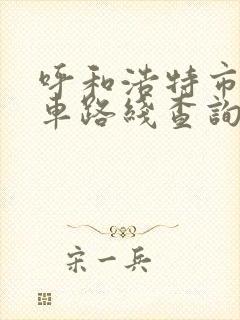 呼和浩特市
車路綫查詢
宋一兵